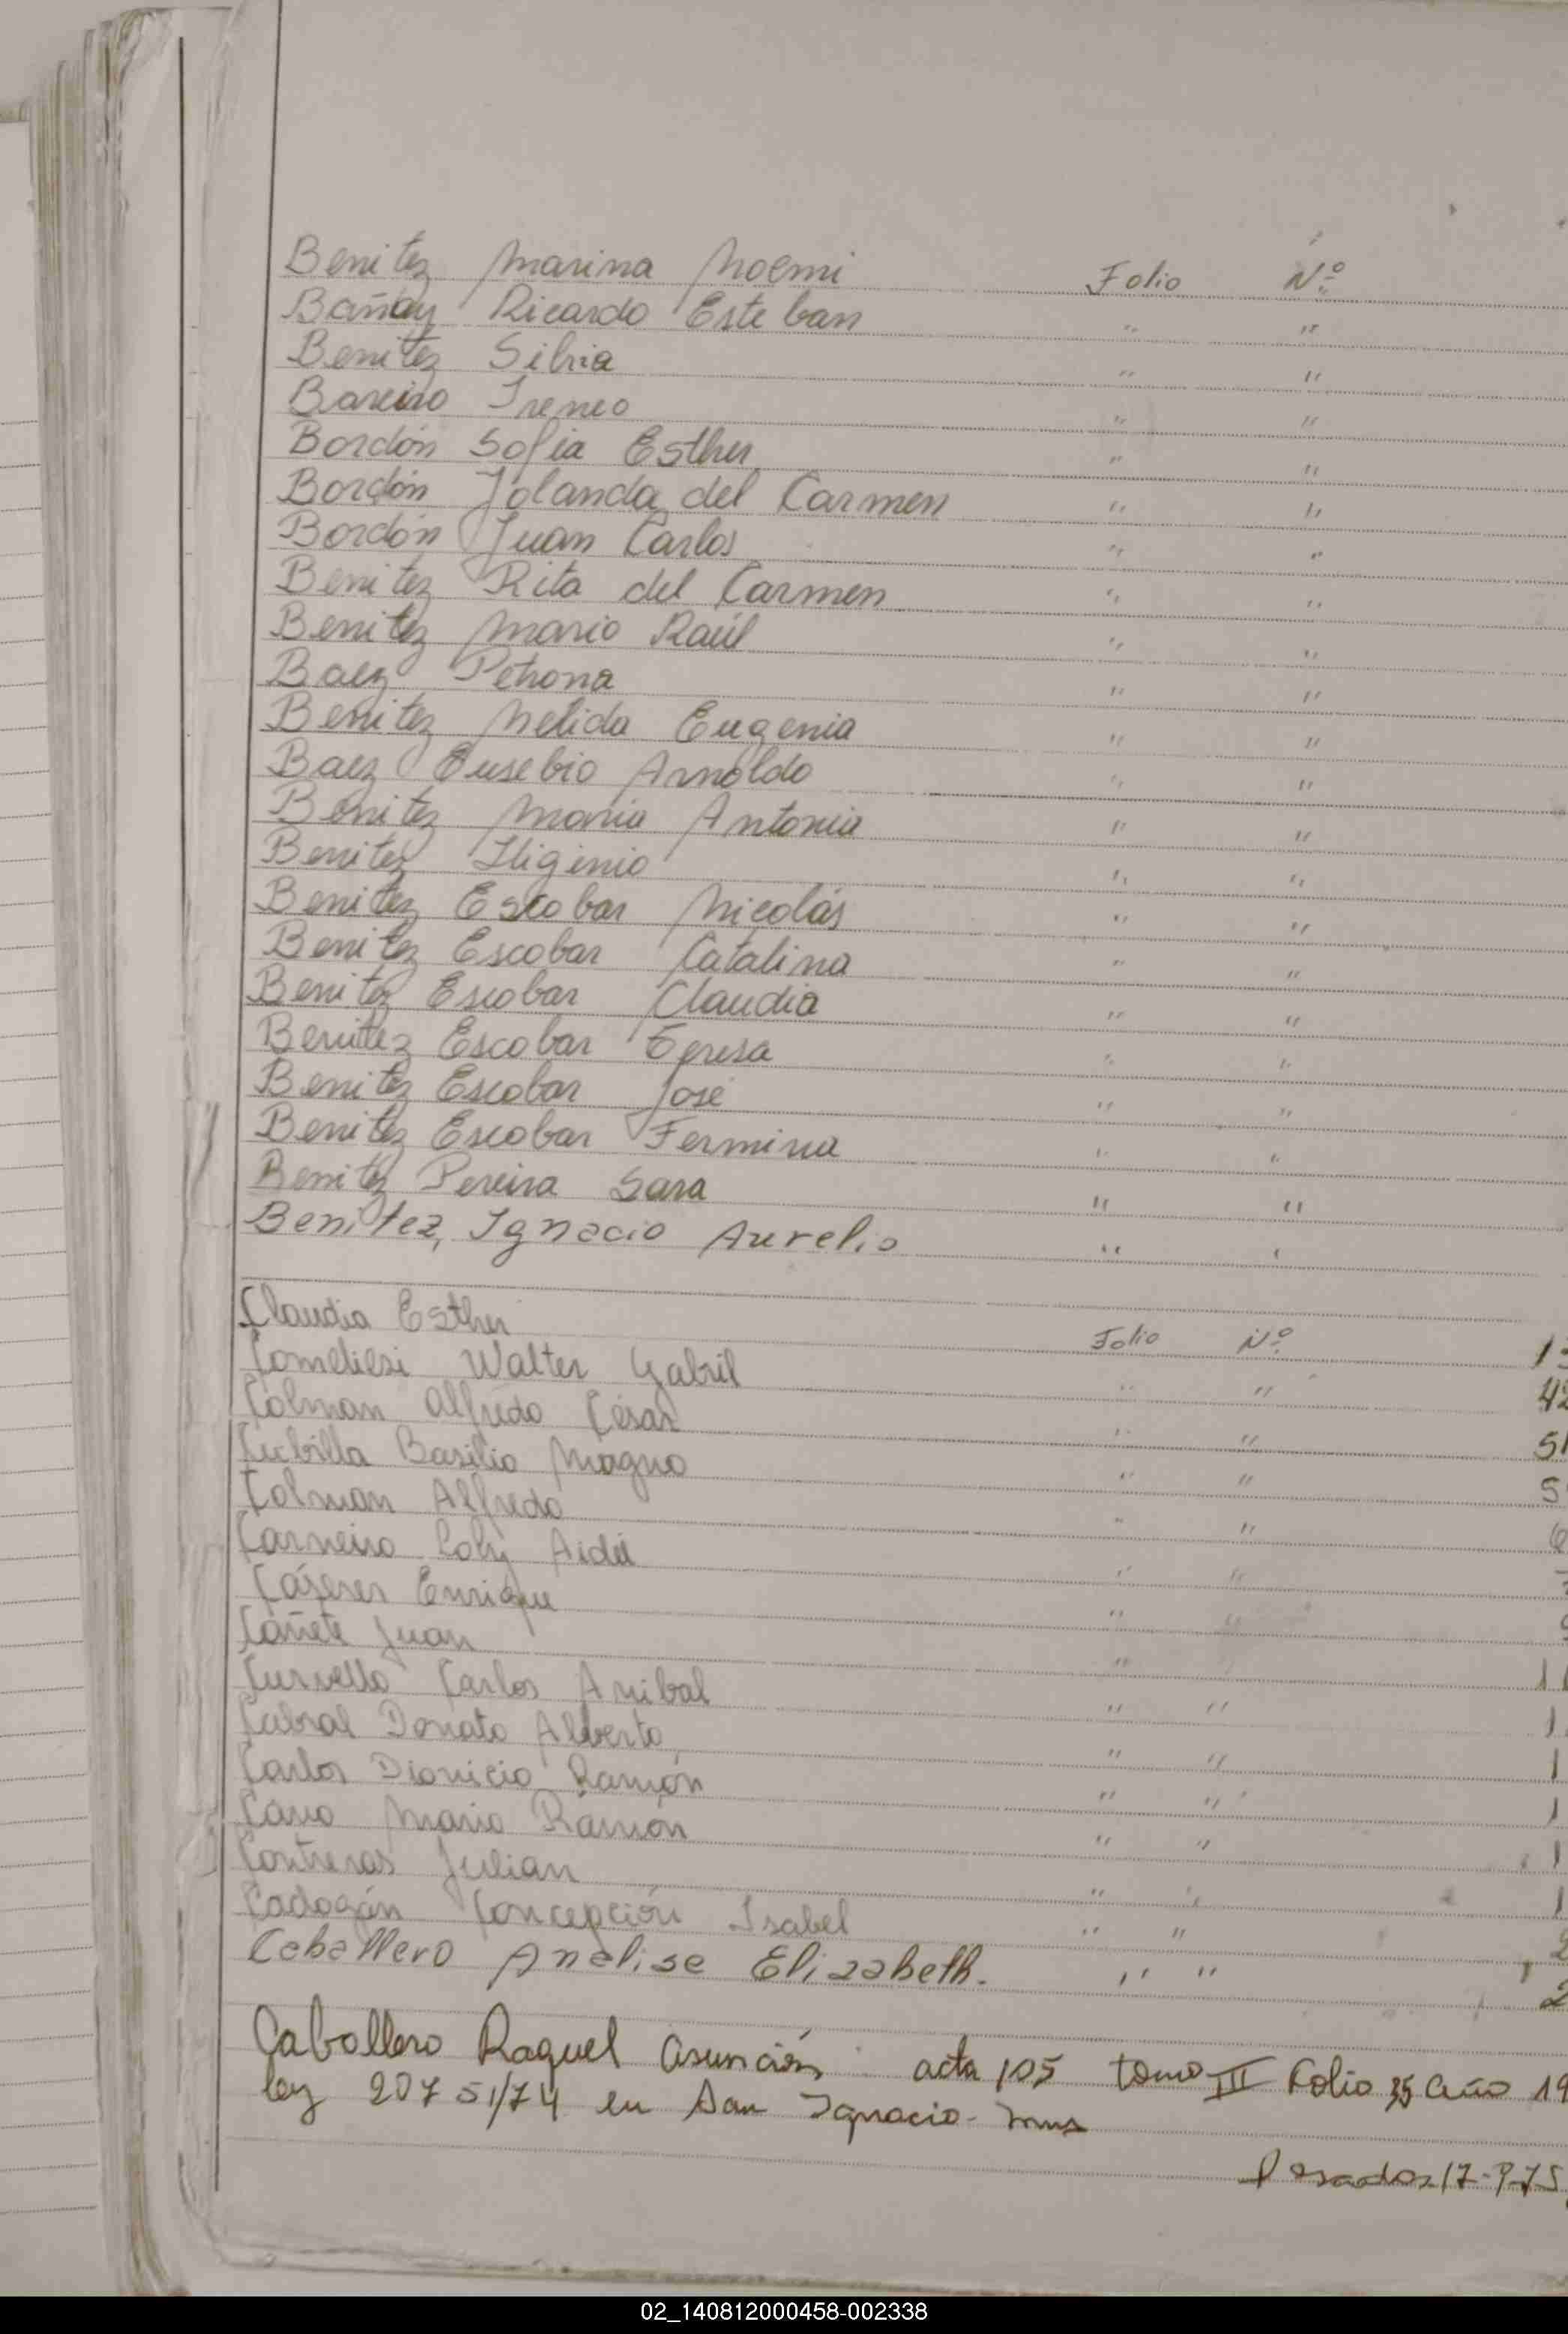 Benitez Marina Noemi Folio Nº
Bañay Ricardo Esteban " "
Benitez Silvia " "
Bareiro Ireneo " "
Bordón Sofia Esther " "
Bordón Jolanda del Carmen " "
Bordón Juan Carlos " "
Benitez Rita del Carmen " "
Benitez Mario Raúl " "
Baez Petrona " "
Benitez Nelida Eugenia " "
Baez Eusebio Arnoldo " "
Benitez Maria Antonia " "
Benitez Higinio " "
Benitez Escobar Nicolás " "
Benitez Escobar Catalina " "
Benitez Escobar Claudia " "
Benitez Escobar Teresa " "
Benitez Escobar José " "
Benitez Escobar Fermina " "
Benitez Pereira Sara " "
Benitez, Ignacio Aurelio " "
Claudia Esther Folio Nº 13
Walter Gabril " " 42
Colman Alfredo César " " 51
Cubilla Basilio Magno " " 5
Colman Alfredo " " 6
Carneiro Loly Aidé " "
Cáseres Enrique " "
Cañete Juan " 1
Carlos Anibal " " 1
Cabral Donato Alberto " " 1
Carlos Dionicio Ramón " " 1
Cano Mario Ramón " " 1
Contreras Julian " " 1
Cadogán Concepción Isabel " " 2
Caballero Analise Elizabeth. " " 2
Caballero Raquel Asunción acta 105 tomo III Folio 35 año 19
ley 20751/74 en San Ignacio-
Posadas 17-9-75
02_140812000458-002338